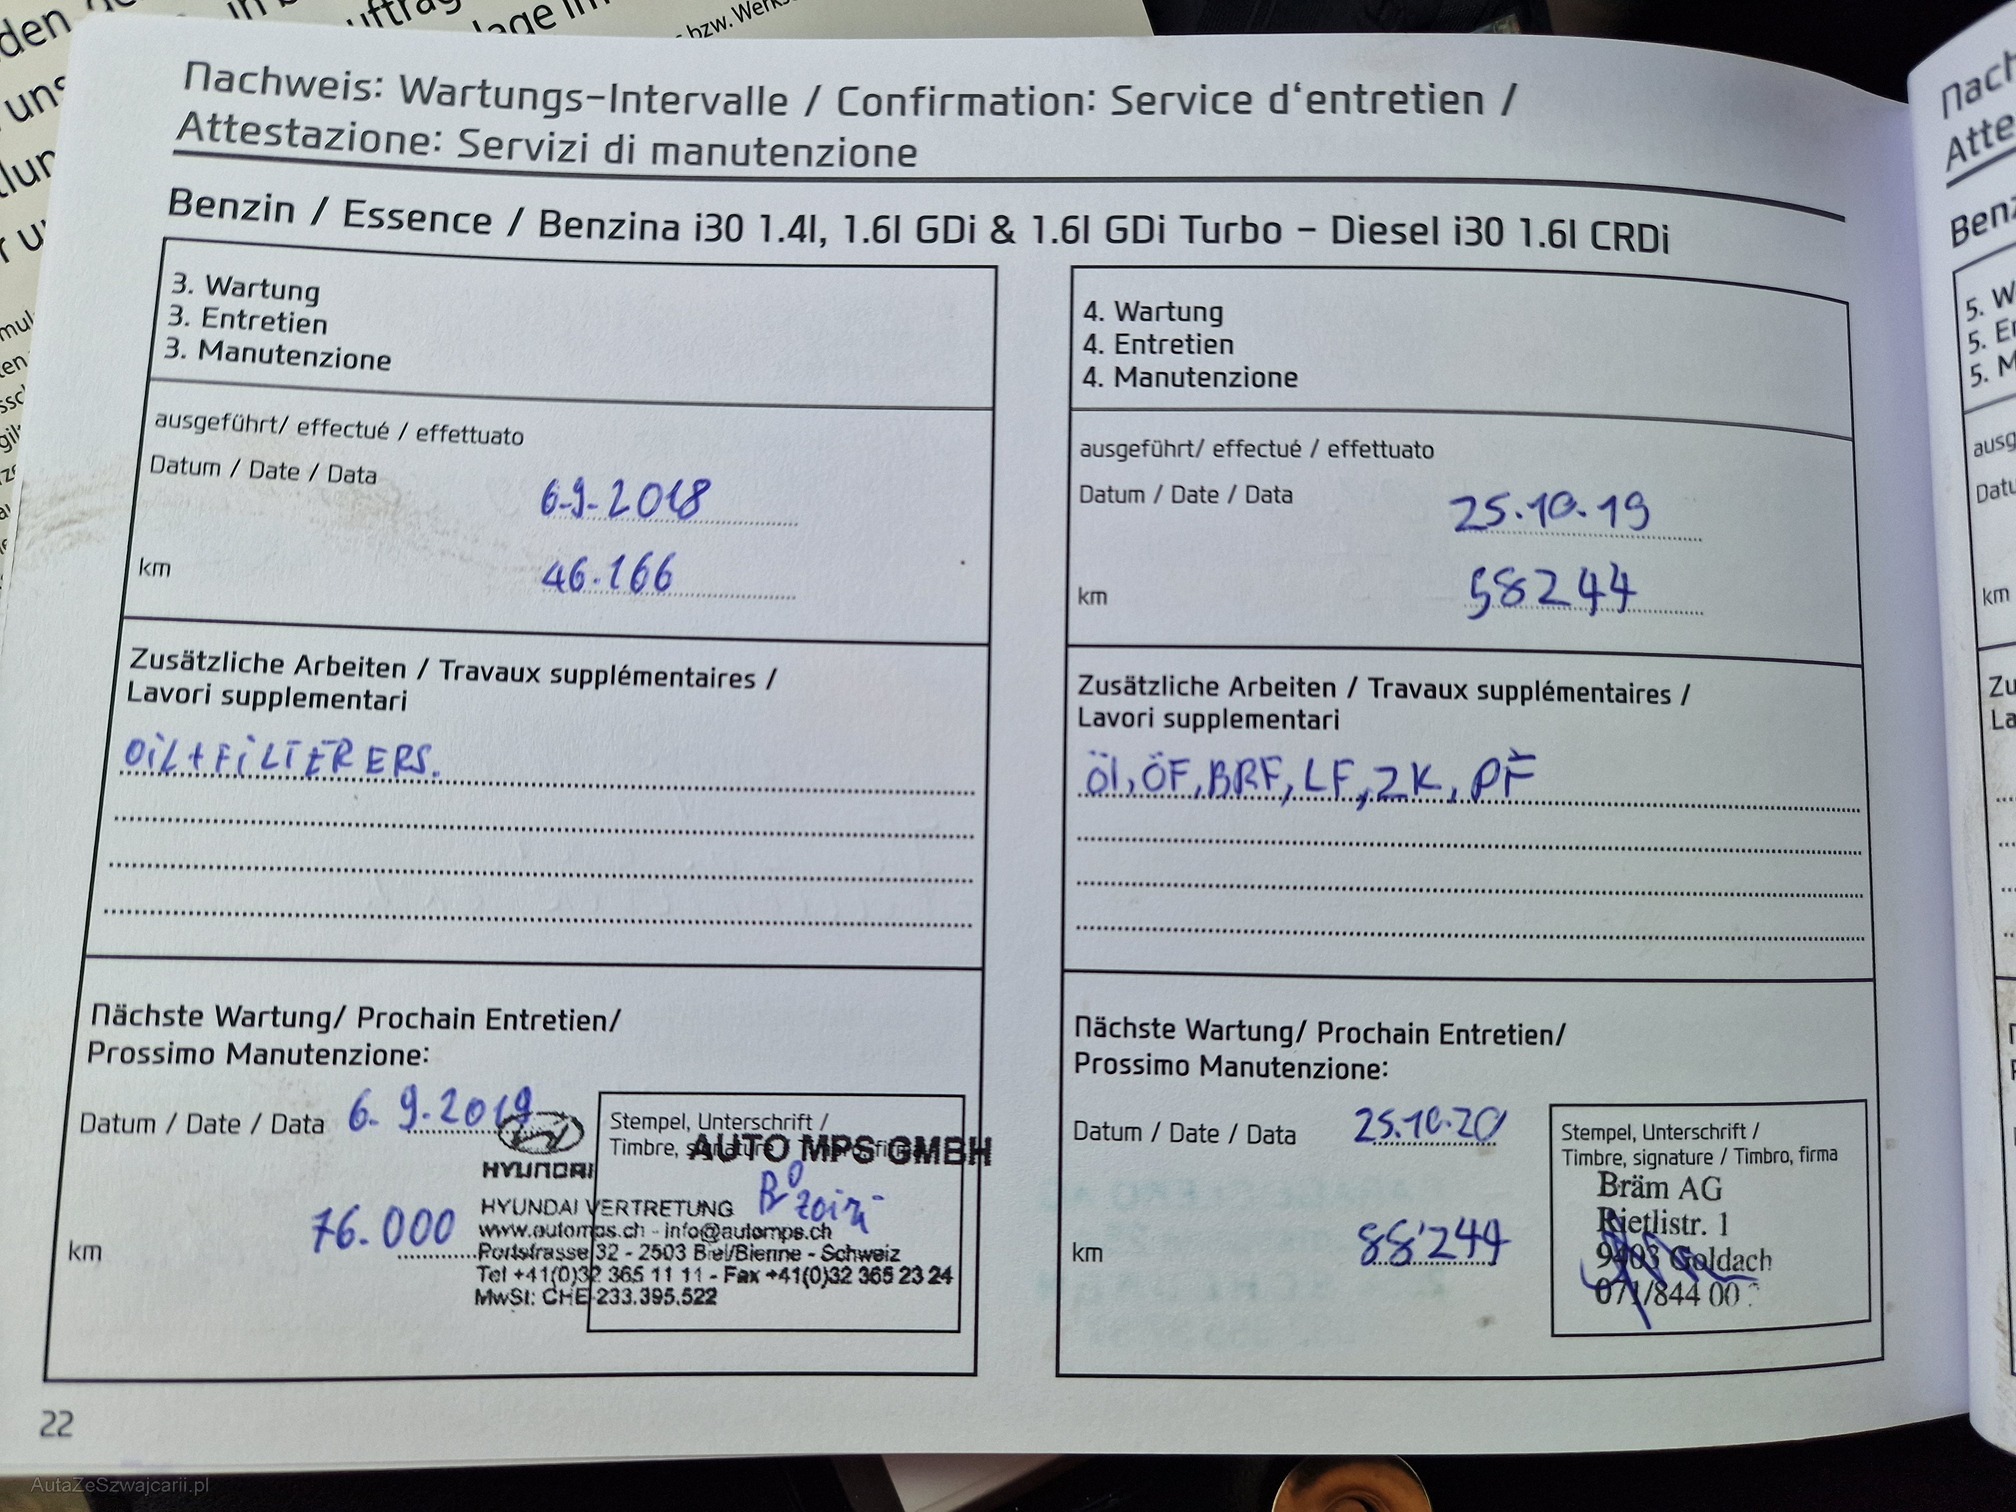 bzw.
Nachweis: Wartungs-Intervalle / Confirmation: Service d'entretien /
Attestazione: Servizi di manutenzione
Benzin / Essence / Benzina i30 1.4l, 1.6l GDi & 1.6l GDi Turbo – Diesel i30 1.6l CRDi
3. Wartung
3. Entretien
3. Manutenzione
ausgeführt/ effectué / effettuato
Datum / Date / Data 6.9.2018
km 46.166
Zusätzliche Arbeiten / Travaux supplémentaires /
Lavori supplementari
OIL + FILTER ERS.
Nächste Wartung/ Prochain Entretien/
Prossimo Manutenzione:
Datum / Date / Data 6. 9.2019
km 76.000
Stempel, Unterschrift /
Timbre,
AUTO MPS GMBH
HYUNDAI
HYUNDAI VERTRETUNG
www.automps.ch - info@automps.ch
Portstrasse 32 - 2503 Biel/Bienne - Schweiz
Tel +41(0)32 365 11 11 - Fax +41(0)32 365 23 24
MwSt: CHE 233.395.522
4. Wartung
4. Entretien
4. Manutenzione
ausgeführt/ effectué / effettuato
Datum / Date / Data 25.10.19
km 58244
Zusätzliche Arbeiten / Travaux supplémentaires /
Lavori supplementari
Öl, ÖF, BRF, LF, ZK, PF
Nächste Wartung/ Prochain Entretien/
Prossimo Manutenzione:
Datum / Date / Data 25.10.20
km 88'244
Stempel, Unterschrift /
Timbre, signature / Timbro, firma
Bräm AG
Rietlistr. 1
9403 Goldach
071/844 00
22
AutaZeSzwajcarii.pl